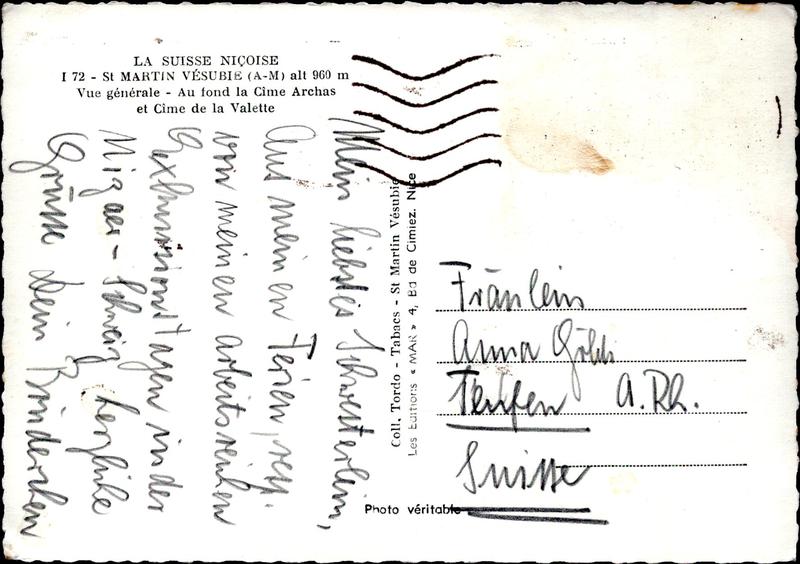 LA SUISSE NIÇOISE
I 72 - St MARTIN VÉSUBIE (A-M) alt 960 m
Vue générale - Au fond la Cîme Archas
et Cîme de la Valette
Mein liebstes Schwesterlein,
Aus meinen Ferien, resp.
von meinen arbeitsreichen
Exkursionstagen in der
Schweiz herzliche
Grüsse Dein Brüderchen
Coll. Tordo - Tabacs - St Martin Vésubie
Les Editions « MAR » 4, Bd de Cimiez. Nice
Fräulein
Anna
Teufen A. Rh.
Suisse
Photo véritable